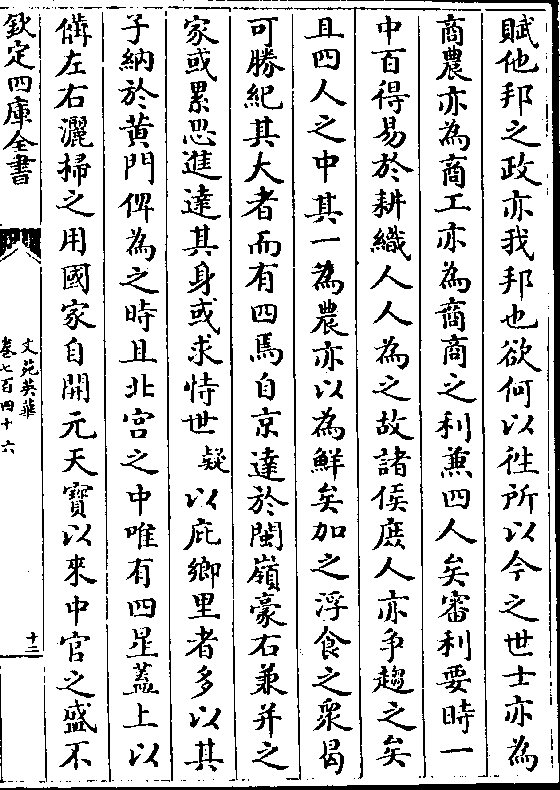 賦他邦之政亦我邦也欲何以徃所以今之世士亦為
商農亦為商工亦為商商之利兼四人矣審利要時一
中百得易於耕織人人為之故諸侯庶人亦争趨之矣
且四人之中其一為農亦以為鮮矣加之浮食之衆曷
可勝紀其大者而有四焉自京達於閩嶺豪右兼并之
家或累思進達其身或求恃世疑以庇鄉里者多以其
子納於黄門俾為之時且北宫之中唯有四星蓋上以
備左右灑掃之用國家自開元天寶以來中官之盛不
欽定四庫全書
文苑英華
卷七百四十六
十二